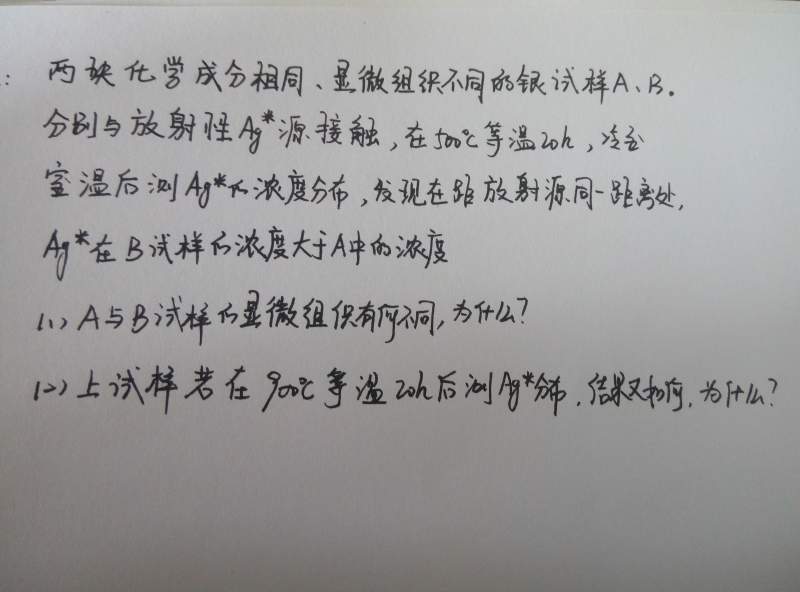 : 两块化学成分相同、显微组织不同的银试样A、B.
分别与放射性Ag*源接触,在500℃等温20h,冷至
室温后测Ag*的浓度分布,发现在距放射源同一距离处,
Ag*在B试样的浓度大于A中的浓度
(1) A与B试样的显微组织有何不同,为什么?
(2) 上试样若在900℃等温20h后测Ag*分布.结果又如何,为什么?